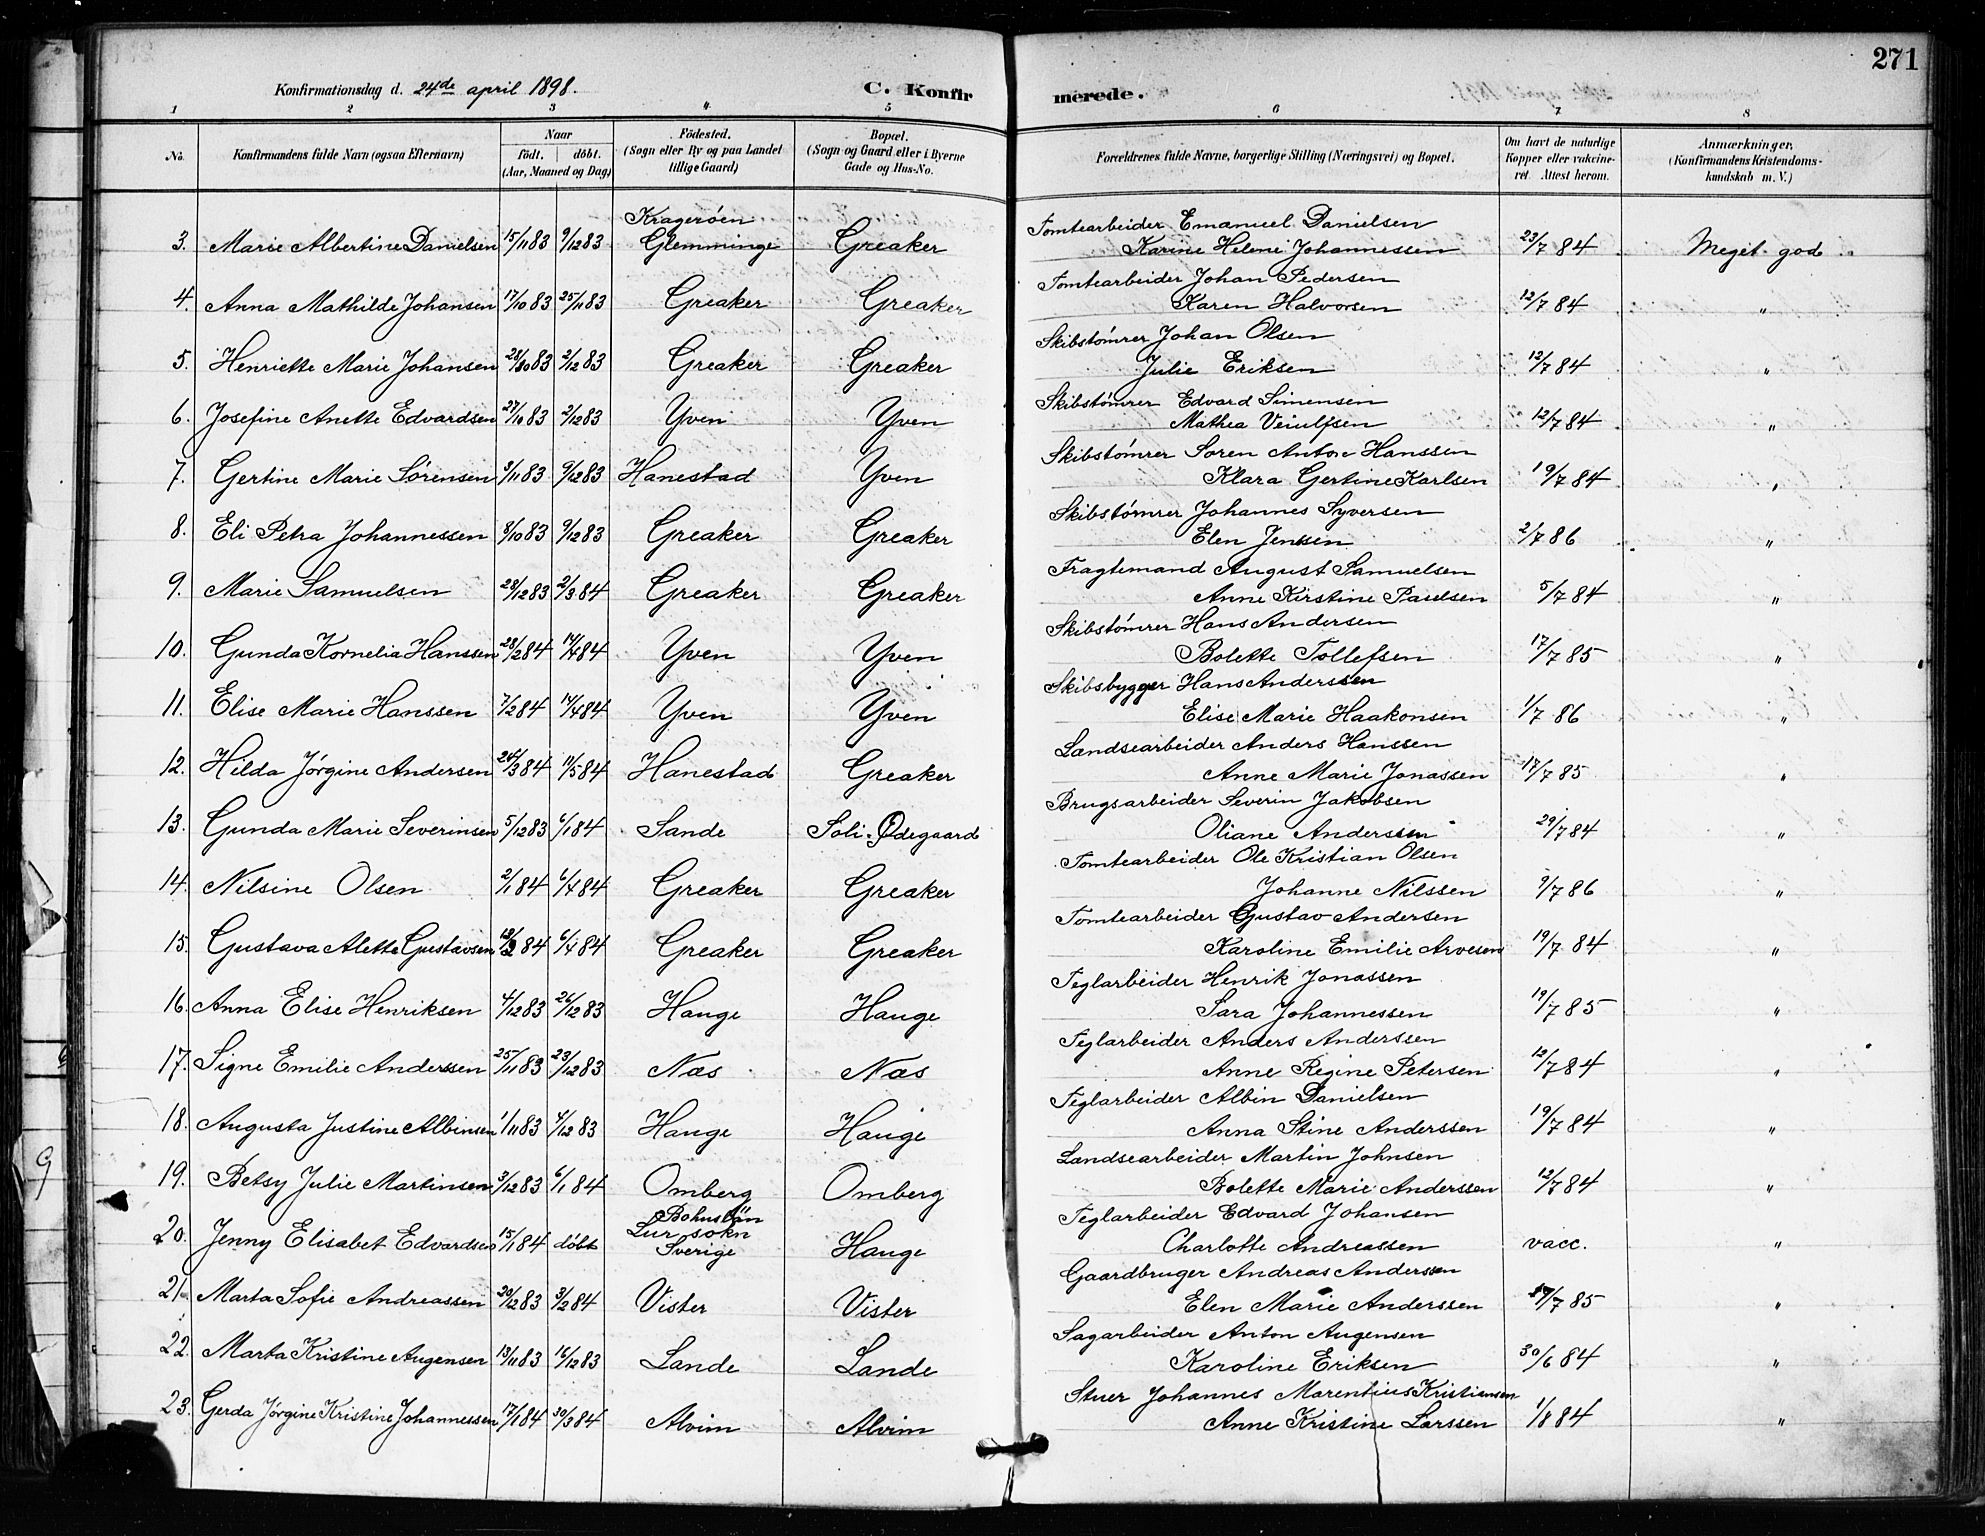 271
Konfirmationsdag d. 24de april 1898. C. Konfirmerede.
1 2 3 4 5 6 7 8
No. Konfirmandens fulde Navn (ogsaa Efternavn) Naar födt. döbt. (Aar, Maaned og Dag) Födested. (Sogn eller By og paa Landet tillige Gaard) Bopæl. (Sogn og Gaard eller i Byerne Gade og Hus-No. Forældrenes fulde Navne, borgerlige Stilling (Næringsvei) og Bopæl. Om havt de naturlige Kopper eller vakcineret. Attest herom. Anmærkninger, (Konfirmandens Kristendomskundskab m. V.)
3. Marie Albertine Danielsen 15/11 83 9/12 83 Kragerøen Glemminge Greaker Tomtearbeider Emanuel Danielsen
Karine Helene Johannessen 23/7 84 Meget god
4. Anna Mathilde Johansen 17/10 83 25/11 83 Greaker Greaker Tomtearbeider Johan Pedersen
Karen Halvorsen 12/7 84 "
5. Henriette Marie Johansen 28/10 83 2/12 83 Greaker Greaker Skibstømrer Johan Olsen
Julie Eriksen 12/7 84 "
6. Josefine Anette Edvardsen 27/10 83 2/12 83 Yven Yven Skibstømrer Edvard Simensen
Mathea Veiulfsen 12/7 84 "
7. Gertine Marie Sørensen 3/11 83 9/12 83 Hanestad Yven Skibstømrer Soren Anton Hanssen
Klara Gertine Karlsen 19/7 84 "
8. Eli Petra Johannessen 8/10 83 9/12 83 Greaker Greaker Skibstømrer Johannes Syversen
Elen Jensen 2/7 86 "
9. Marie Samuelsen 28/12 83 2/3 84 Greaker Greaker Fragtemand August Samuelsen
Anne Kirstine Paulsen 5/7 84 "
10. Gunda Kornelia Hanssen 28/2 84 14/4 84 Yven Yven Skibstømrer Hans Andersen
Bolette Tollefsen 17/7 85 "
11. Elise Marie Hanssen 7/2 84 14/4 84 Yven Yven Skibsbygger Hans Anderssen
Elise Marie Haakonsen 1/7 86 "
12. Hilda Jørgine Andersen 24/3 84 11/5 84 Hanestad Greaker Landsearbeider Anders Hanssen
Anne Marie Jonassen 17/7 85 "
13. Gunda Marie Severinsen 5/12 83 6/1 84 Sande Soli-Ødegaard Brugsarbeider Severin Jakobsen
Oliane Anderssen 29/7 84 "
14. Nilsine Olsen 2/1 84 6/4 84 Greaker Greaker Tomtearbeider Ole Kristian Olsen
Johanne Nilssen 9/7 86 "
15. Gustava Alette Gustavsen 2 84 6/4 84 Greaker Greaker Tomtearbeider Gustav Andersen
Karoline Emilie Arvesen 19/7 84 "
16. Anna Elise Henriksen 4/12 83 26/12 83 Hauge Hauge Teglarbeider Henrik Jonassen
Sara Johannessen 19/7 85 "
17. Signe Emilie Anderssen 25/11 83 23/12 83 Næs Næs Teglarbeider Anders Anderssen
Anne Regine Petersen 12/7 84 "
18. Augusta Justine Albinsen 1/11 83 4/12 83 Hauge Hauge Teglarbeider Albin Danielsen
Anna Stine Anderssen 19/7 84 "
19. Betsy Julie Martinsen 3/12 83 6/1 84 Omberg Omberg Landsearbeider Martin Johnsen
Bolette Marie Anderssen 12/7 84 "
20. Jenny Elisabet Edvardsen 15/1 84 døbt Bohuslän Lur sokn Sverige Hauge Teglarbeider Edvard Johansen
Charlotte Andreassen vacc. "
21. Marta Sofie Andreassen 20/12 83 3/2 84 Vister Vister Gaardbruger Andreas Anderssen
Elen Marie Anderssen 7 85 "
22. Marta Kristine Augensen 13/11 83 16/12 83 Lande Lande Sagarbeider Anton Augensen
Karoline Eriksen 30/6 84 "
23. Gerda Jørgine Kristine Johannessen 17/1 84 30/3 84 Alvim Alvim Stuer Johannes Marentius Kristiansen
Anne Kristine Larssen 1/8 84 "